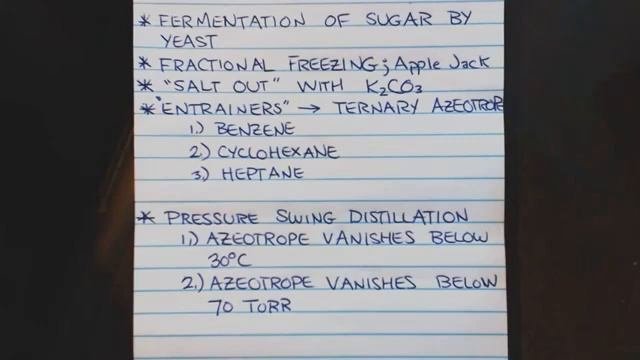 * FERMENTATION OF SUGAR BY
YEAST
* FRACTIONAL FREEZING; Apple Jack
* "SALT OUT" WITH K₂CO₃
* "ENTRAINERS" → TERNARY AZEOTROPE
1.) BENZENE
2.) CYCLOHEXANE
3.) HEPTANE
* PRESSURE SWING DISTILLATION
1.) AZEOTROPE VANISHES BELOW
30°C
2.) AZEOTROPE VANISHES BELOW
70 TORR